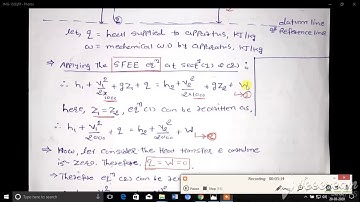 datum line
or Reference line
let, q = heat supplied to apparatus, KJ/kg
w = mechanical w.D by apparatus, KJ/kg
⇒ Applying the SFEE eqⁿ at secⁿ (1) & (2) :
∴ h₁ + v₁²/2×1000 + gz₁ + q = h₂ + v₂²/2×1000 + gz₂ + w
here, z₁ = z₂, eqⁿ (1) can be rewritten as,
∴ h₁ + v₁²/2000 + q = h₂ + v₂²/2000 + w
⇒ Now, let consider the heat transfer &
is zero. Therefore, q = w = 0
⇒ Therefore eqⁿ (2) can be
Recording... 00:03:19